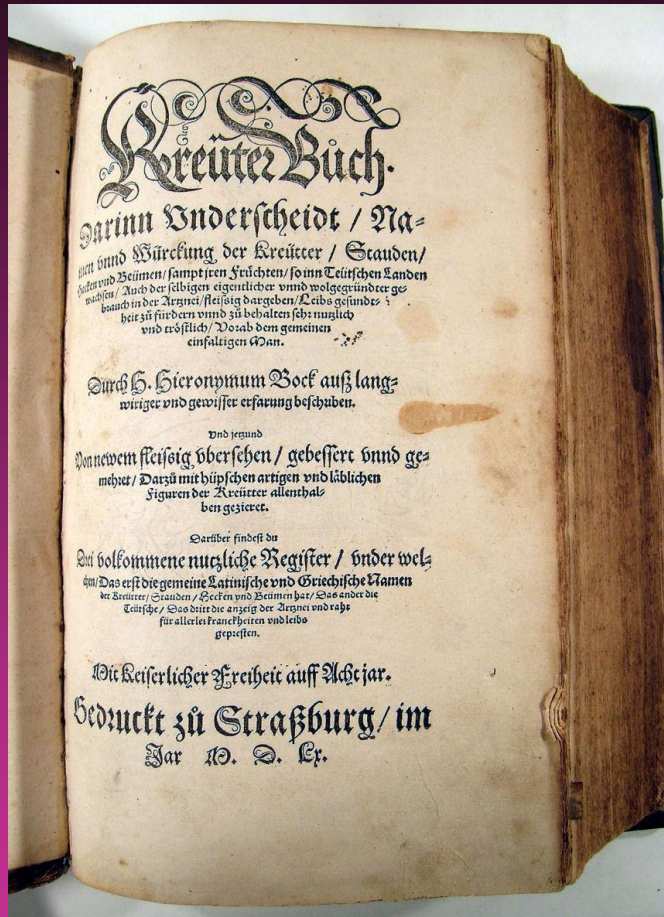 Kreüter Bůch.
Darinn Vnderscheidt / Na-
men vnnd Würckung der Kreütter / Stauden /
Hecken vnd Beümen / sampt jren Früchten / so inn Teütschen Landen
wachsen / Auch der selbigen eigentlicher vnnd wolgegründter ge-
brauch in der Artznei / fleissig dargeben / Leibs gesundt-
heit zů fürdern vnnd zů behalten sehr nutzlich
vnd tröstlich / Vorab dem gemeinen
einfaltigen Man.
Durch H. Hieronymum Bock auß lang-
wiriger vnd gewisser erfarung beschriben.
Vnd jetzund
Von newem fleissig vbersehen / gebessert vnnd ge-
mehret / Darzů mit hüpschen artigen vnd läblichen
Figuren der Kreütter allenthal-
ben gezieret.
Darüber findest du
Drei volkommene nutzliche Register / vnder wel-
chen / Das erst die gemeine Latinische vnd Griechische Namen
der Kreütter / Stauden / Hecken vnd Beümen hat / Das ander die
Teütsche / Das dritt die anzeig der Artznei vnd raht
für allerlei kranckheiten vnd leibs
gepresten.
Mit Keiserlicher Freiheit auff Acht jar.
Gedruckt zů Straßburg / im
Jar M. D. Lx.